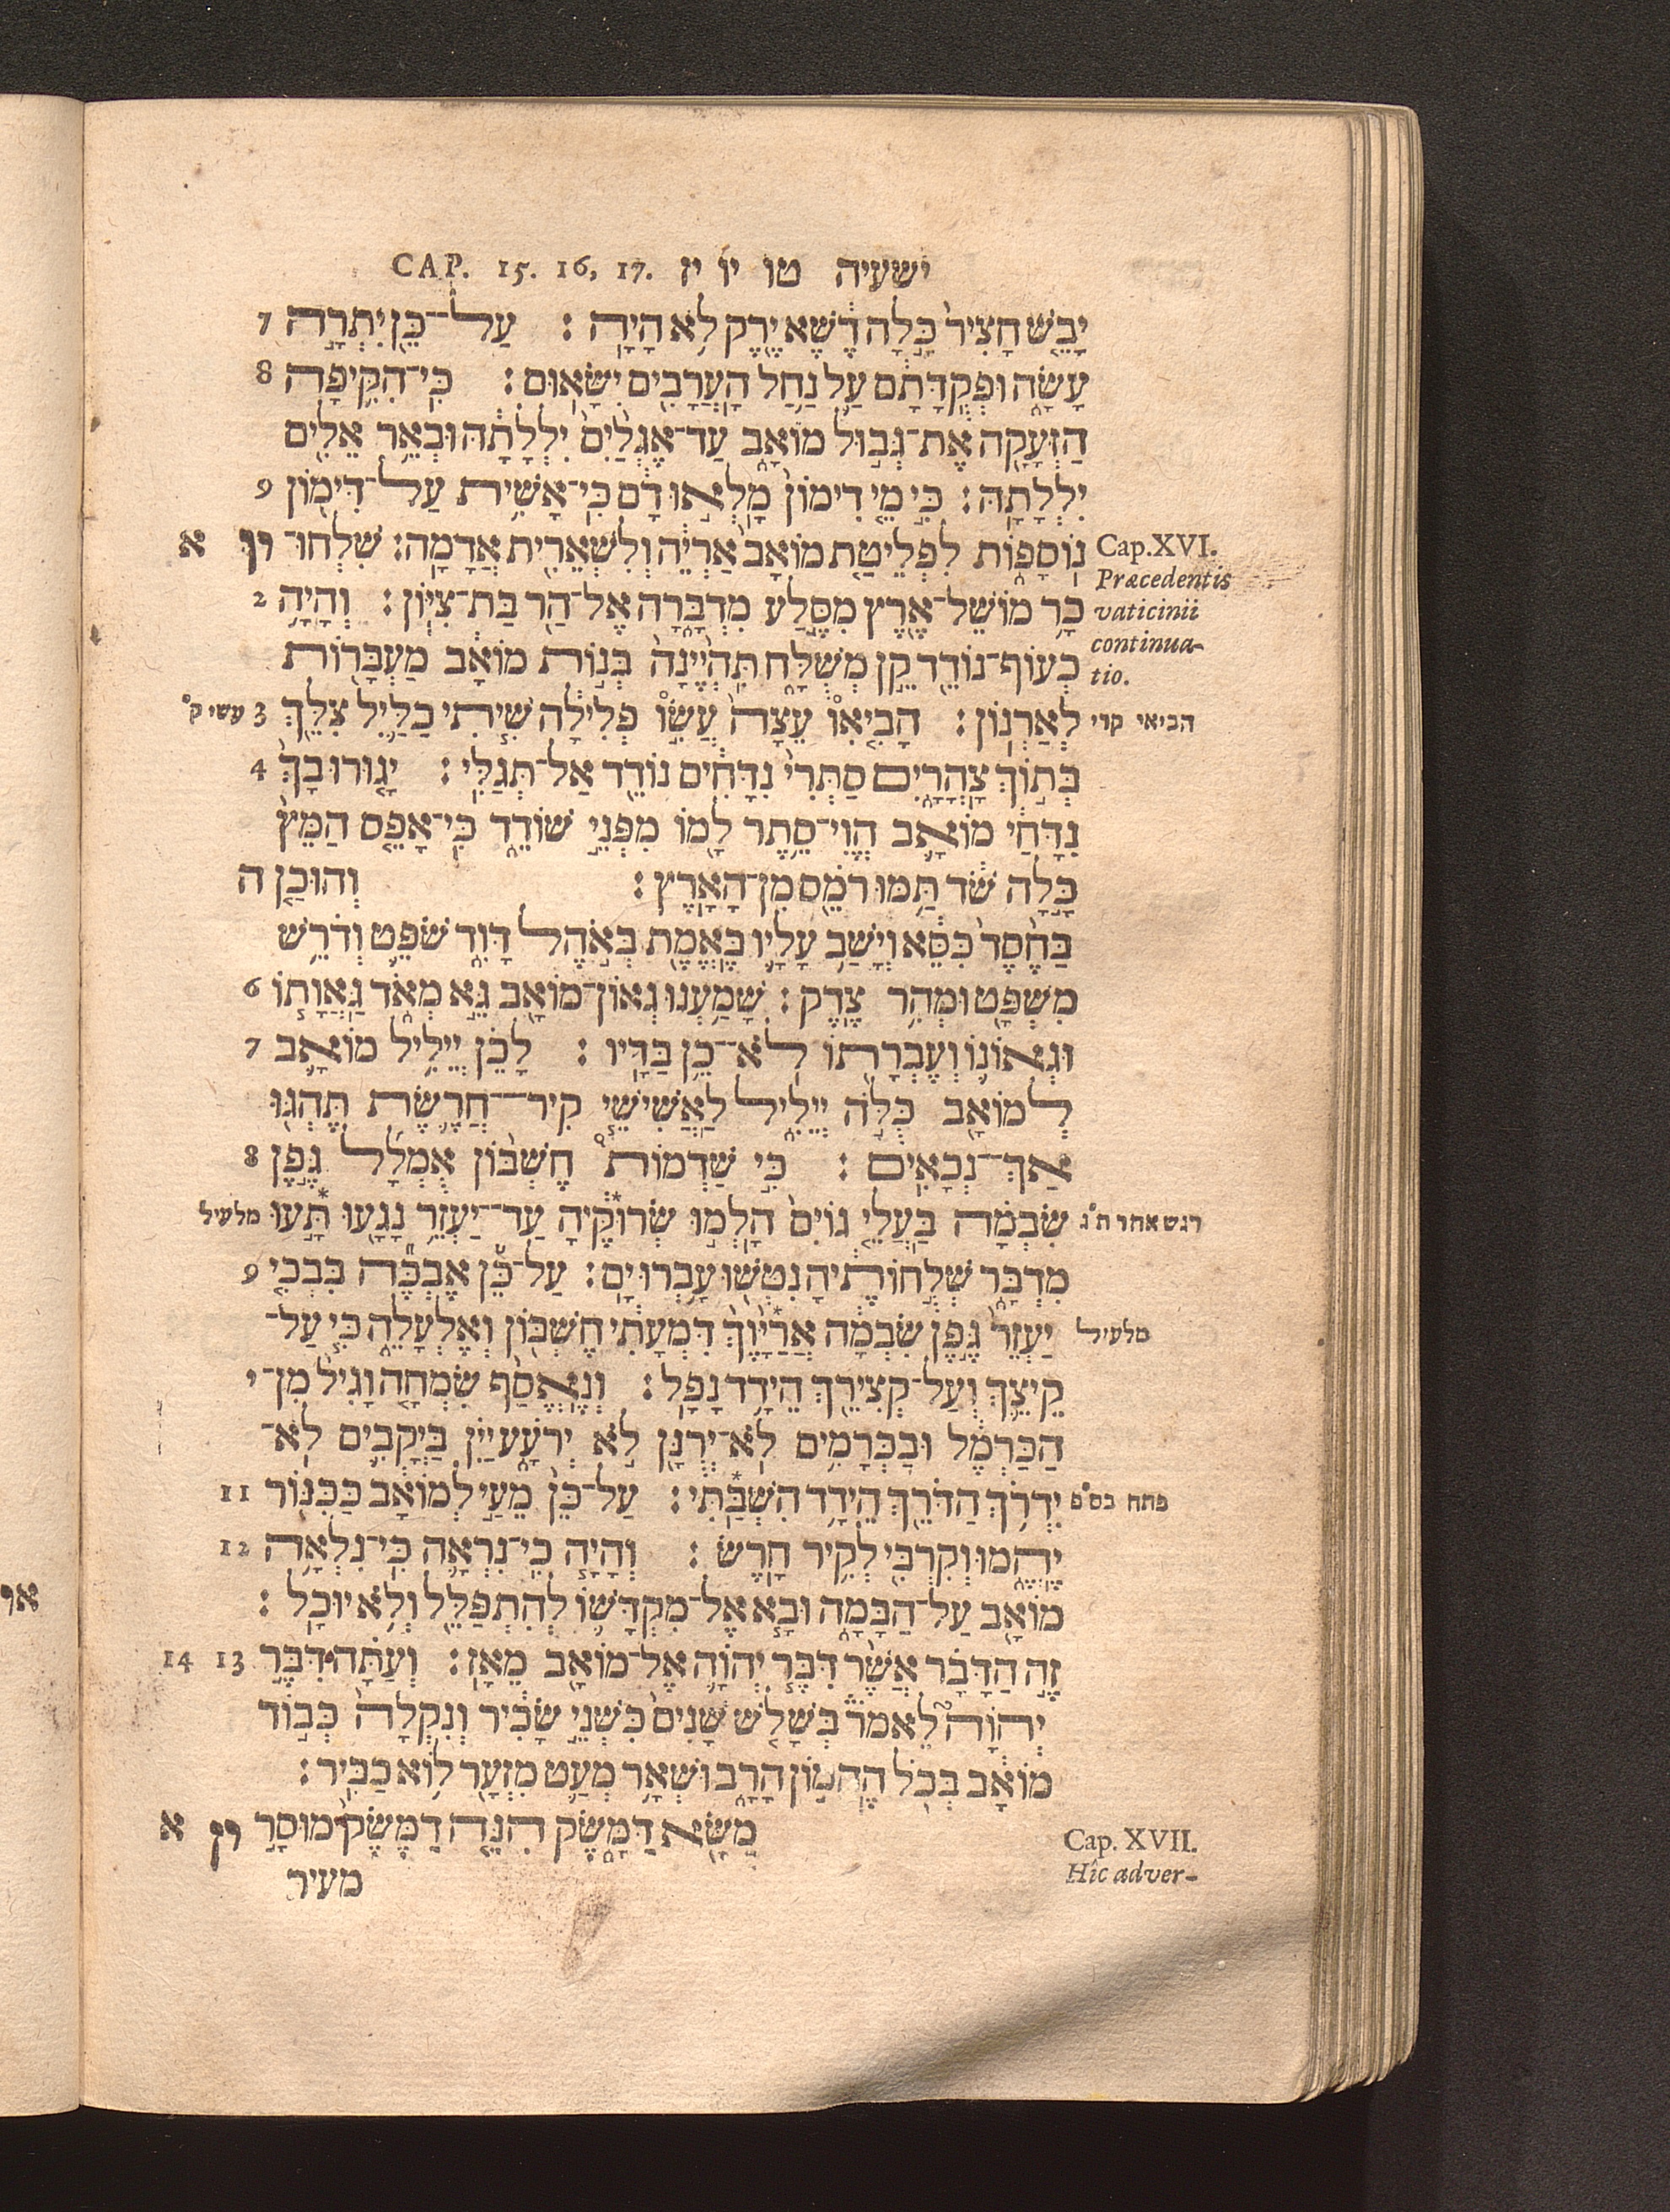 ישעיה טו יו יז CAP. 15. 16, 17.
יָבֵ֤שׁ חָצִיר֙ כָּ֣לָה דֶ֔שֶׁא יֶ֖רֶק לֹ֥א הָיָֽה׃ עַל־כֵּ֖ן יִתְרָ֣ה 7
עָשָׂ֑ה וּפְקֻדָּתָ֔ם עַ֛ל נַ֥חַל הָעֲרָבִ֖ים יִשָּׂאֽוּם׃ כִּֽי־הִקִּ֥יפָה 8
הַזְּעָקָ֖ה אֶת־גְּב֣וּל מוֹאָ֑ב עַד־אֶגְלַ֙יִם֙ יִלְלָתָ֔הּ וּבְאֵ֥ר אֵלִ֖ים
יִלְלָתָֽהּ׃ כִּ֣י מֵ֤י דִימוֹן֙ מָ֣לְאוּ דָ֔ם כִּֽי־אָשִׁ֥ית עַל־דִּימ֖וֹן 9
נֽוֹסָפ֑וֹת לִפְלֵיטַ֤ת מוֹאָב֙ אַרְיֵ֔ה וְלִשְׁאֵרִ֖ית אֲדָמָֽה׃ שִׁלְחוּ־ יו א
Cap. XVI.
Præcedentis
vaticinii
continua-
tio.
כַ֥ר מוֹשֵֽׁל־אֶ֖רֶץ מִסֶּ֣לַע מִדְבָּ֑רָה אֶל־הַ֖ר בַּת־צִיּֽוֹן׃ וְהָיָ֥ה 2
כְעוֹף־נוֹדֵ֖ד קֵ֣ן מְשֻׁלָּ֑ח תִּֽהְיֶ֙ינָה֙ בְּנ֣וֹת מוֹאָ֔ב מַעְבָּרֹ֖ת
לְאַרְנֽוֹן׃ הָבִ֤יאִוּ֙ עֵצָה֙ עֲשׂ֣וּ פְלִילָ֔ה שִׁ֧יתִי כַלַּ֛יִל צִלֵּ֖ךְ 3 עשי ק׳
הביאי קרי
בְּת֣וֹךְ צָהֳרָ֑יִם סַתְּרִי֙ נִדָּחִ֔ים נוֹדֵ֖ד אַל־תְּגַלִּֽי׃ יָג֤וּרוּ בָךְ֙ 4
נִדָּחַ֔י מוֹאָ֛ב הֱוִי־סֵ֥תֶר לָ֖מוֹ מִפְּנֵ֣י שׁוֹדֵ֑ד כִּֽי־אָפֵ֤ס הַמֵּץ֙
כָּ֣לָה שֹׁ֔ד תַּ֥מּוּ רֹמֵ֖ס מִן־הָאָֽרֶץ׃ וְהוּכַ֤ן ה
בַּחֶ֙סֶד֙ כִּסֵּ֔א וְיָשַׁ֥ב עָלָ֛יו בֶּאֱמֶ֖ת בְּאֹ֣הֶל דָּוִ֑ד שֹׁפֵ֛ט וְדֹרֵ֥שׁ
מִשְׁפָּ֖ט וּמְהִ֥ר צֶֽדֶק׃ שָׁמַ֥עְנוּ גְאוֹן־מוֹאָ֖ב גֵּ֣א מְאֹ֑ד גַּאֲוָת֧וֹ 6
וּגְאוֹנ֛וֹ וְעֶבְרָת֖וֹ לֹא־כֵ֥ן בַּדָּֽיו׃ לָכֵ֗ן יְיֵלִ֥יל מוֹאָ֛ב 7
לְמוֹאָ֖ב כֻּלֹּ֣ה יְיֵלִ֑יל לַאֲשִׁישֵׁ֧י קִיר־חֲרֶ֛שֶׂת תֶּהְגּ֖וּ
אַךְ־נְכָאִֽים׃ כִּ֣י שַׁדְמוֹת֩ חֶשְׁבּ֨וֹן אֻמְלָ֜ל גֶּ֣פֶן 8
שִׂבְמָ֗ה בַּעֲלֵ֤י גוֹיִם֙ הָלְמ֣וּ שְׂרוּקֶּ֔יהָ עַד־יַעְזֵ֥ר נָגָ֖עוּ תָּ֣עוּ מלעיל
דגש אחר ח׳ג
מִדְבָּ֑ר שְׁלֻ֣חוֹתֶ֔יהָ נִטְּשׁ֖וּ עָ֥בְרוּ יָֽם׃ עַל־כֵּ֡ן אֶבְכֶּ֞ה בִּבְכִ֤י 9
יַעְזֵר֙ גֶּ֣פֶן שִׂבְמָ֔ה אֲרַיָּ֙וֶךְ֙ דִּמְעָתִ֔י חֶשְׁבּ֖וֹן וְאֶלְעָלֵ֑ה כִּ֧י עַל־
מלעיל
קֵיצֵ֛ךְ וְעַל־קְצִירֵ֖ךְ הֵידָ֥ד נָפָֽל׃ וְנֶאֱסַ֨ף שִׂמְחָ֤ה וָגִיל֙ מִן־ י
הַכַּרְמֶ֔ל וּבַכְּרָמִ֥ים לֹֽא־יְרֻנָּ֖ן לֹ֣א יְרֹעָ֑ע יַ֗יִן בַּיְקָבִ֛ים לֹֽא־
יִדְרֹ֥ךְ הַדֹּרֵ֖ךְ הֵידָ֥ד הִשְׁבַּֽתִּי׃ עַל־כֵּן֙ מֵעַ֣י לְמוֹאָ֔ב כַּכִּנּ֖וֹר 11
פתח בס׳פ
יֶֽהֱמ֑וּ וְקִרְבִּ֖י לְקִ֥יר חָֽרֶשׂ׃ וְהָיָ֧ה כִֽי־נִרְאָ֛ה כִּֽי־נִלְאָ֥ה 12
מוֹאָ֖ב עַל־הַבָּמָ֑ה וּבָ֧א אֶל־מִקְדָּשׁ֛וֹ לְהִתְפַּלֵּ֖ל וְלֹ֥א יוּכָֽל׃
זֶ֣ה הַדָּבָ֗ר אֲשֶׁ֨ר דִּבֶּ֧ר יְהוָ֛ה אֶל־מוֹאָ֖ב מֵאָֽז׃ וְעַתָּ֗ה דִּבֶּ֣ר 13 14
יְהוָה֮ לֵאמֹר֒ בְּשָׁלֹ֤שׁ שָׁנִים֙ כִּשְׁנֵ֣י שָׂכִ֔יר וְנִקְלָה֙ כְּב֣וֹד
מוֹאָ֔ב בְּכֹ֖ל הֶהָמ֣וֹן הָרָ֑ב וּשְׁאָ֥ר מְעַ֛ט מִזְעָ֖ר ל֥וֹא כַבִּֽיר׃
מַשָּׂ֖א דַּמָּ֑שֶׂק הִנֵּ֤ה דַמֶּ֙שֶׂק֙ מוּסָ֣ר יז א
Cap. XVII.
Hîc adver-
מעיר